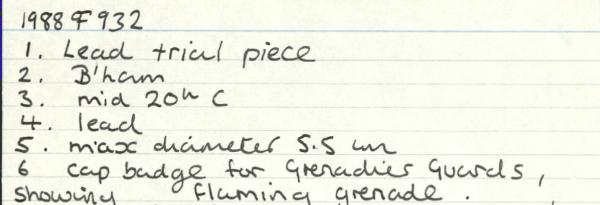 1988 F 932
1. Lead trial piece
2. B'ham
3. mid 20th C
4. lead
5. max diameter 5.5 cm
6 cap badge for Grenadier Guards,
showing flaming grenade.